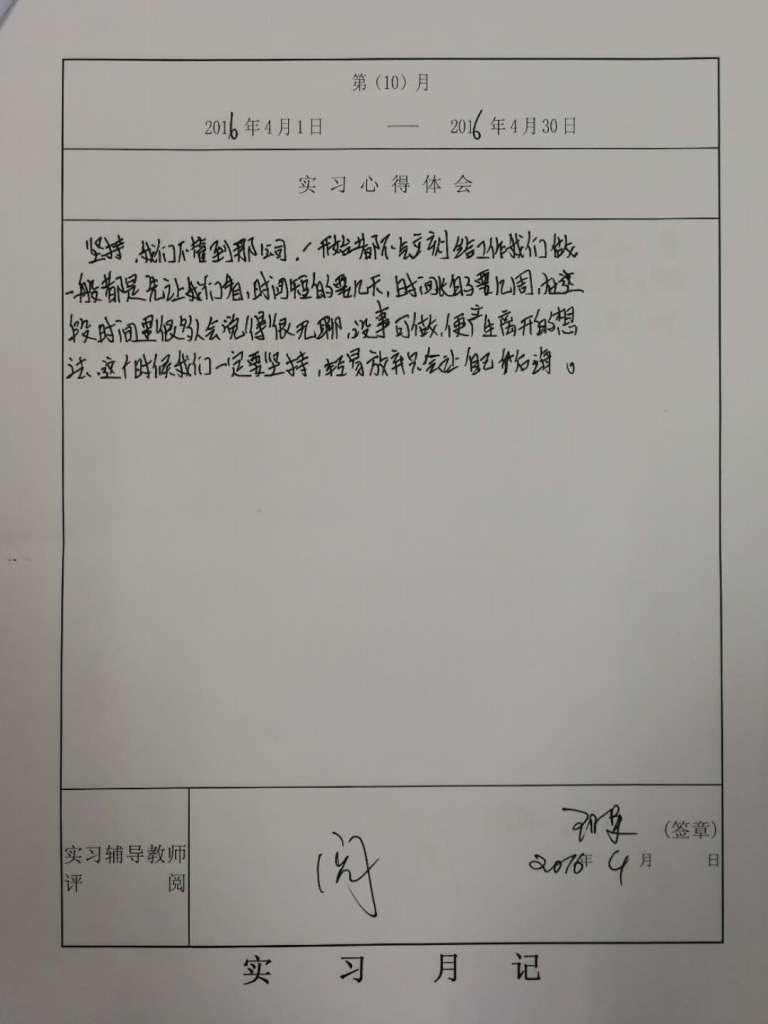 第（10）月
2016年4月1日 —— 2016年4月30日
实习心得体会
坚持，我们不管到那公司，一开始都不会立刻给工作我们做
一般都是先让我们看，时间短的要几天，时间长的要几周，在这
段时间里很多人会觉得很无聊，没事可做，便产生离开的想
法，这个时候我们一定要坚持，轻易放弃只会让自己后悔。
实习辅导教师
评 阅
阅
（签章）
2016年4月 日
实习月记